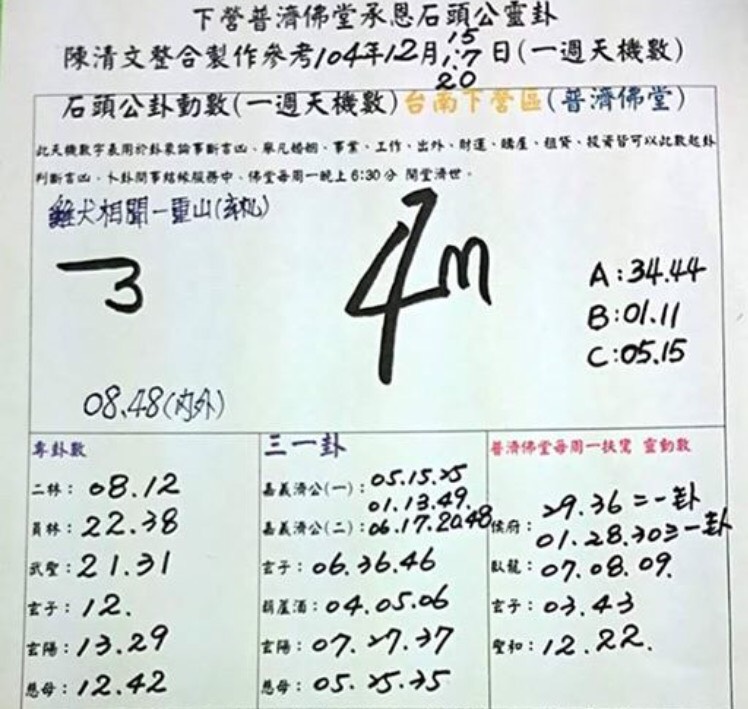 下營普濟佛堂承恩石頭公靈卦
陳清文整合製作參考104年12月15.17.20日(一週天機數)
石頭公卦動數(一週天機數)台南下營區(普濟佛堂)
此天機數字表用於卦象論事斷吉凶、舉凡婚姻、事業、工作、出外、財運、購屋、租貸、投資皆可以此數起卦
判斷吉凶、卜卦問事結緣服務中、佛堂每周一晚上6:30分 開堂濟世。
雞犬相聞一重山(玄机)
3
4
m
A:34.44
B:01.11
C:05.15
08.48(内外)
專卦數
二林:08.12
員林:22.38
武聖:21.31
玄子:12.
玄陽:13.29
慈母:12.42
三一卦
嘉義濟公(一):05.15.25
01.13.49.
嘉義濟公(二):06.17.20.48
玄子:06.36.46
葫蘆酒:04.05.06
玄陽:07.27.37
慈母:05.25.35
普濟佛堂每周一扶鸞 靈動數
侯府:29.36二一卦
01.28.30三一卦
臥龍:07.08.09.
玄子:03.43
聖和:12.22.